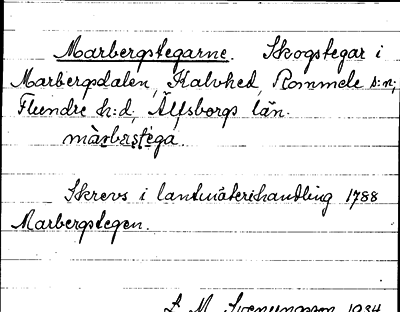 Marbergstegarne. Skogstegar i
Marbergsdalen, Kalvhed, Rommele s:n,
Flundre h:d, Älfsborgs län.
màrbərstega.
Skrevs i lantmäterihandling 1788
Marbergstegen.
L. M. Svenungsson 1934